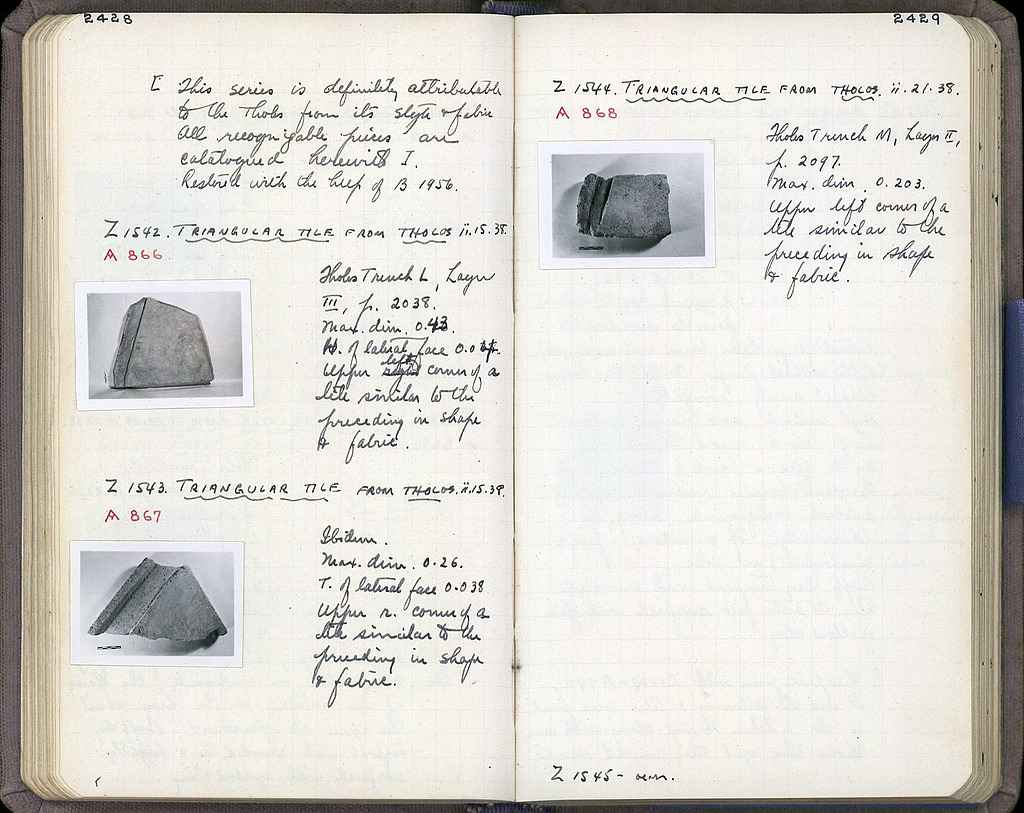 2428
[ This series is definitely attributable
to the Tholos from its style & fabric
All recognizable pieces are
catalogued herewith ].
Restored with the help of B 1956.
Z 1542. TRIANGULAR TILE FROM THOLOS ii.15.38.
A 866
Tholos Trench L, Layer
III, p. 2038.
Max. dim. 0.43.
H. of lateral face 0.0
Upper left corner of a
tile similar to the
preceding in shape
& fabric.
Z 1543. TRIANGULAR TILE FROM THOLOS. ii.15.38.
A 867
Ibidem.
Max. dim. 0.26.
T. of lateral face 0.038
Upper r. corner of a
tile similar to the
preceding in shape
& fabric.
2429
Z 1544. TRIANGULAR TILE FROM THOLOS. ii.21.38.
A 868
Tholos Trench M, Layer II,
p. 2097.
Max. dim. 0.203.
Upper left corner of a
tile similar to the
preceding in shape
& fabric.
Z 1545-